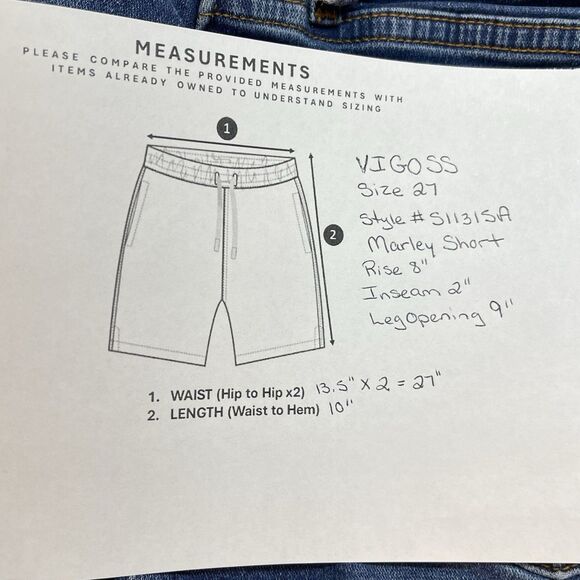 MEASUREMENTS
PLEASE COMPARE THE PROVIDED MEASUREMENTS WITH
ITEMS ALREADY OWNED TO UNDERSTAND SIZING
1
2
VIGOSS
Size 27
Style # S1131SA
Marley Short
Rise 8"
Inseam 2"
Leg Opening 9"
1. WAIST (Hip to Hip x2) 13.5" X 2 = 27"
2. LENGTH (Waist to Hem) 10"